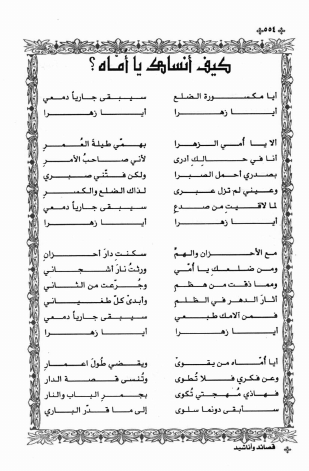 ٥٥٤
كيف أنساك يا أمّاه ؟
أيا مكسورة الضلع سيبقى جارياً دمعي
أيا زهرا أيا زهرا
ألا يا أمي الزهرا بهمّي طيلة العُمر
أنا في حالكِ أدرى لأني صاحبُ الأمر
بصدري أحمل الصبرا ولكن فتّني صبري
وعيني لم تزل عبرى لذاك الضلع والكسر
لما لاقيتِ من صدع سيبقى جارياً دمعي
أيا زهرا أيا زهرا
مع الأحزان والهمّ سكنتِ دارَ أحزان
ومن ضلعك يا أمّي ورثتُ نارَ أشجاني
ومما ذقت من هظم وجُرعت من الثاني
أثار الدهر في الظلم وأبدى كلّ طغياني
فمن آلامك طبعي سيبقى جارياً دمعي
أيا زهرا أيا زهرا
أيا أمّاه من يقوى ويقضي طولَ اعمار
وعن فكري فلا تُطوى وتُنسى قصة الدار
فهاذي مُهجتي تُكوى بجمرِ الباب والنار
سأبقى دونما سلوى إلى ما قدّر الباري
قصائد وأناشيد